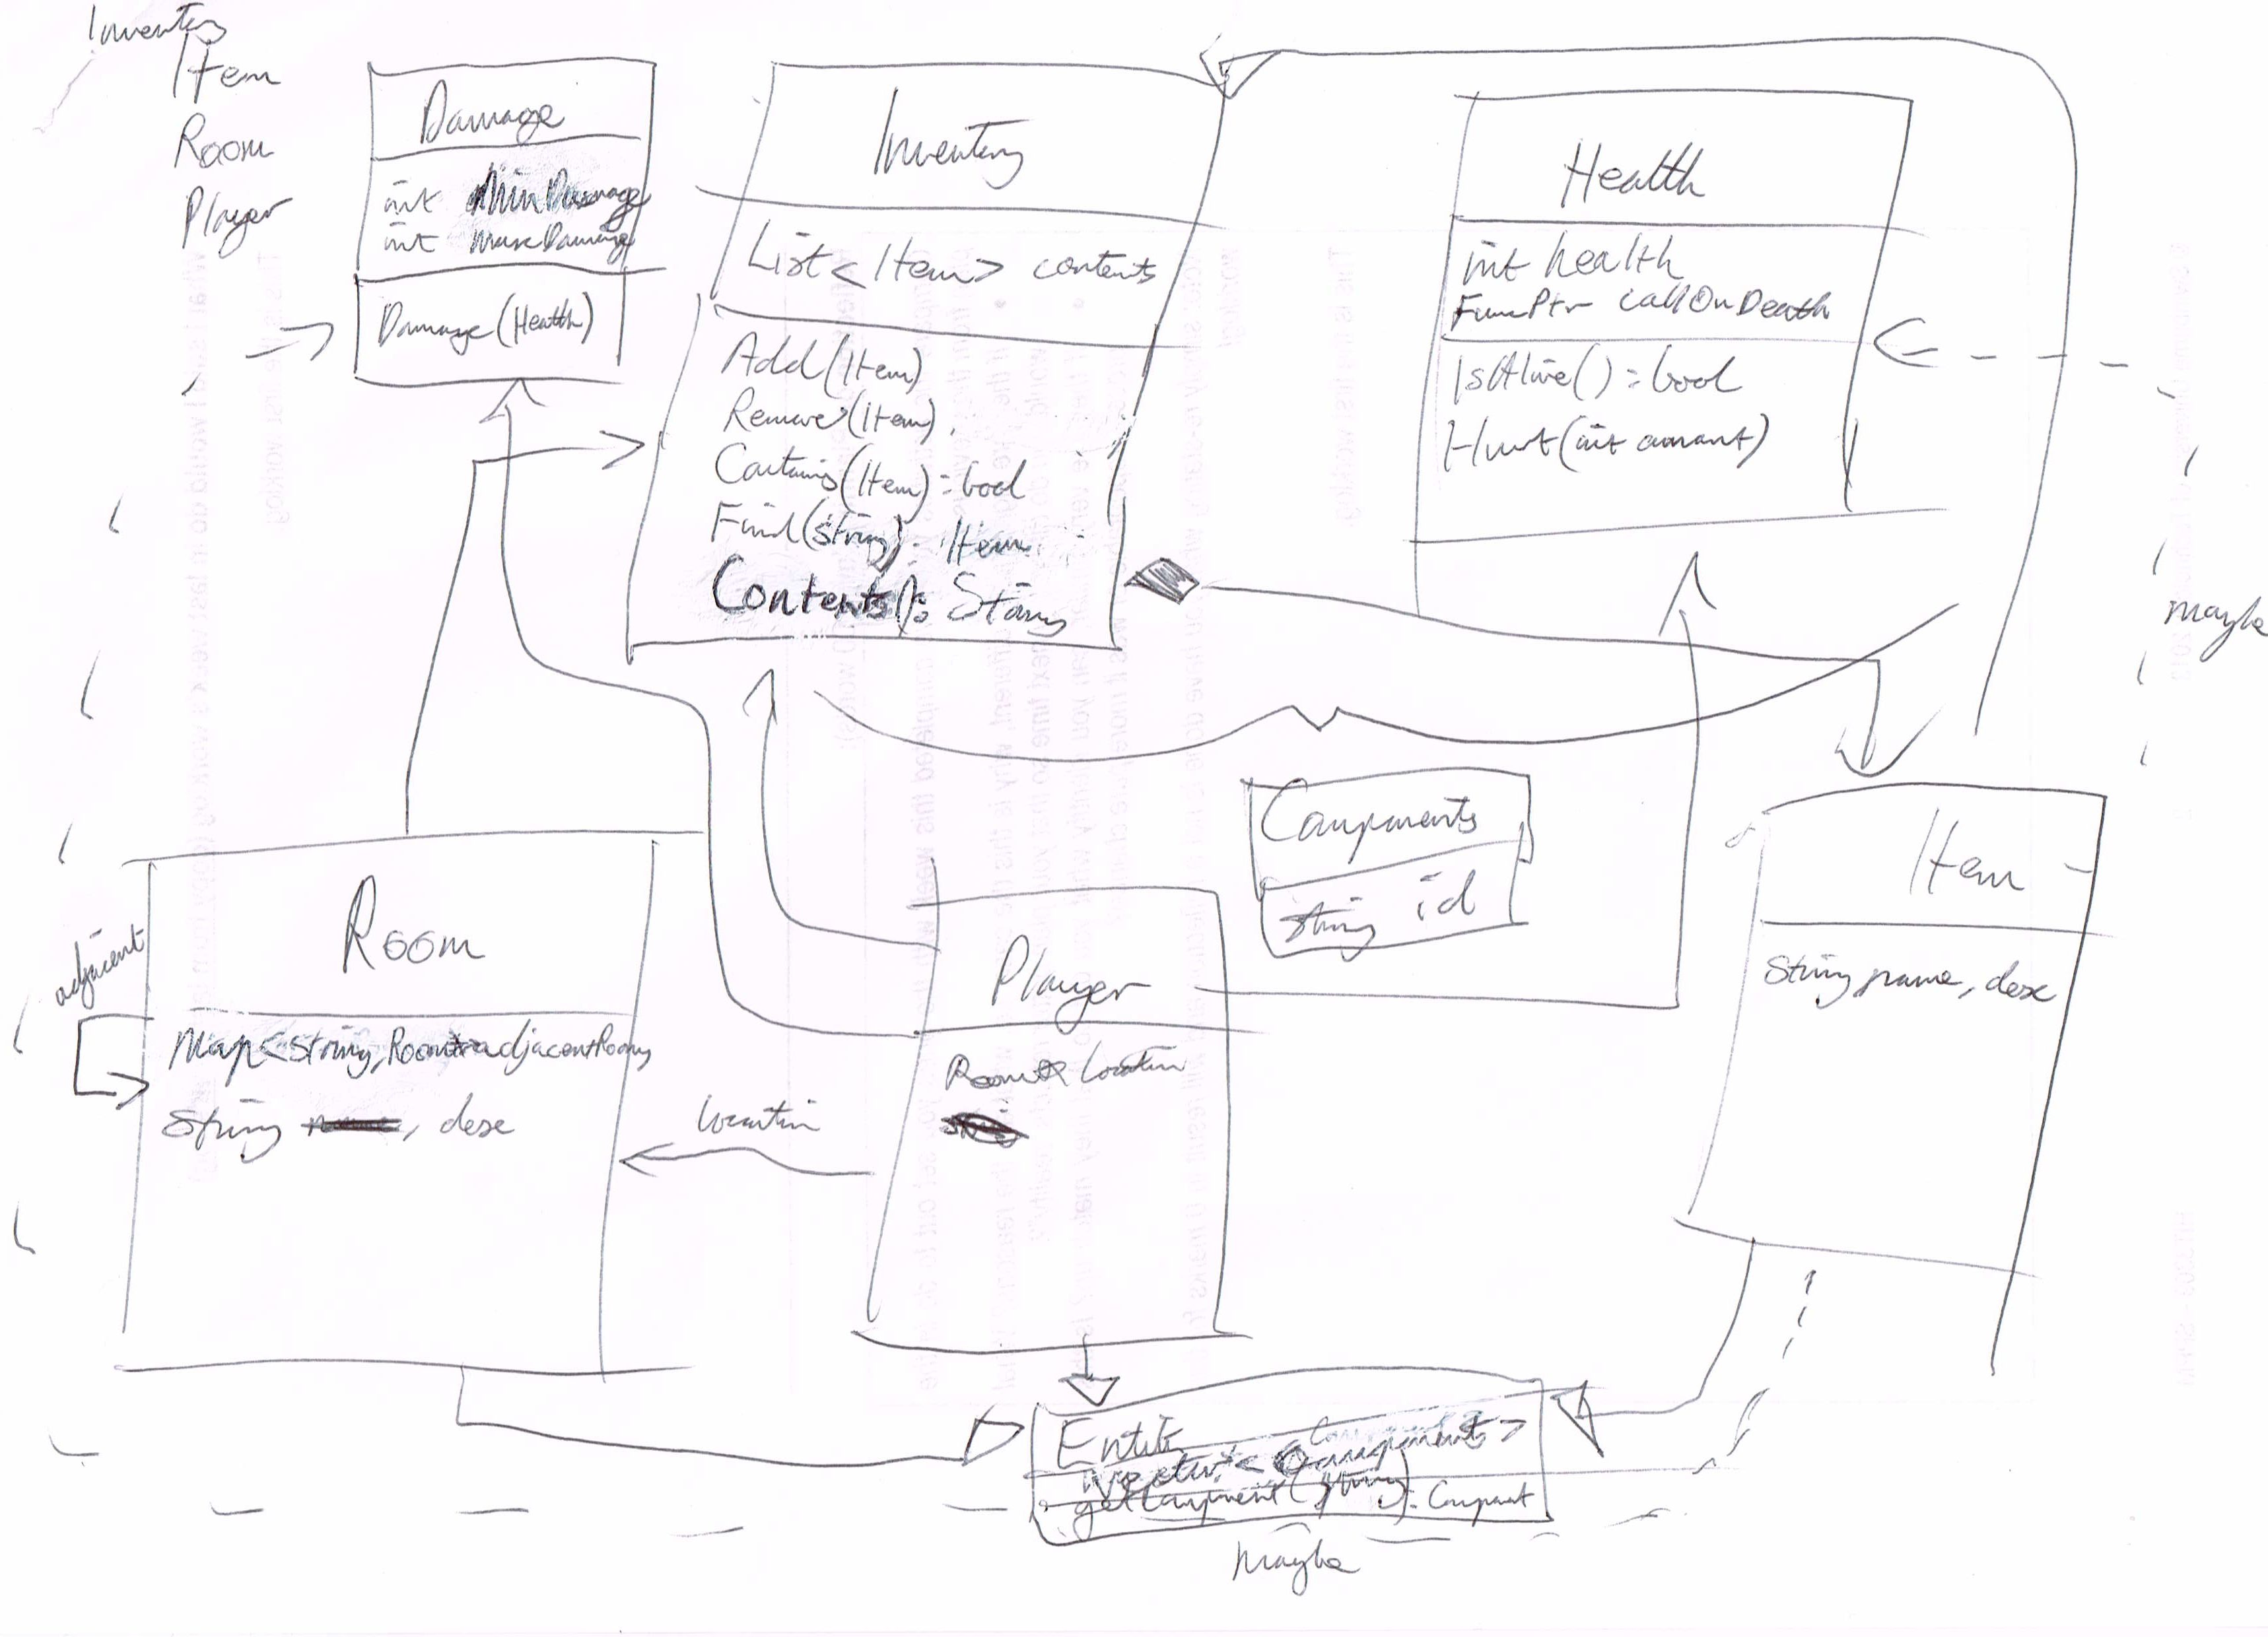 Inventory
Item
Room
Player
Damage
int MinDamage
int MaxDamage
Damage(Health)
Inventory
List<Item> contents
Add(Item)
Remove(Item)
Contains(Item) : bool
Find(string) : Item
Contents() : String
Health
int health
FuncPtr callOnDeath
IsAlive() : bool
Hurt(int amount)
maybe
Components
string id
Item
String name, desc
Room
adjacent
Map<string, Room*> adjacentRooms
String , desc
Player
Room* Location
location
Entity
vector<Components>
getComponent(string) : Component
maybe